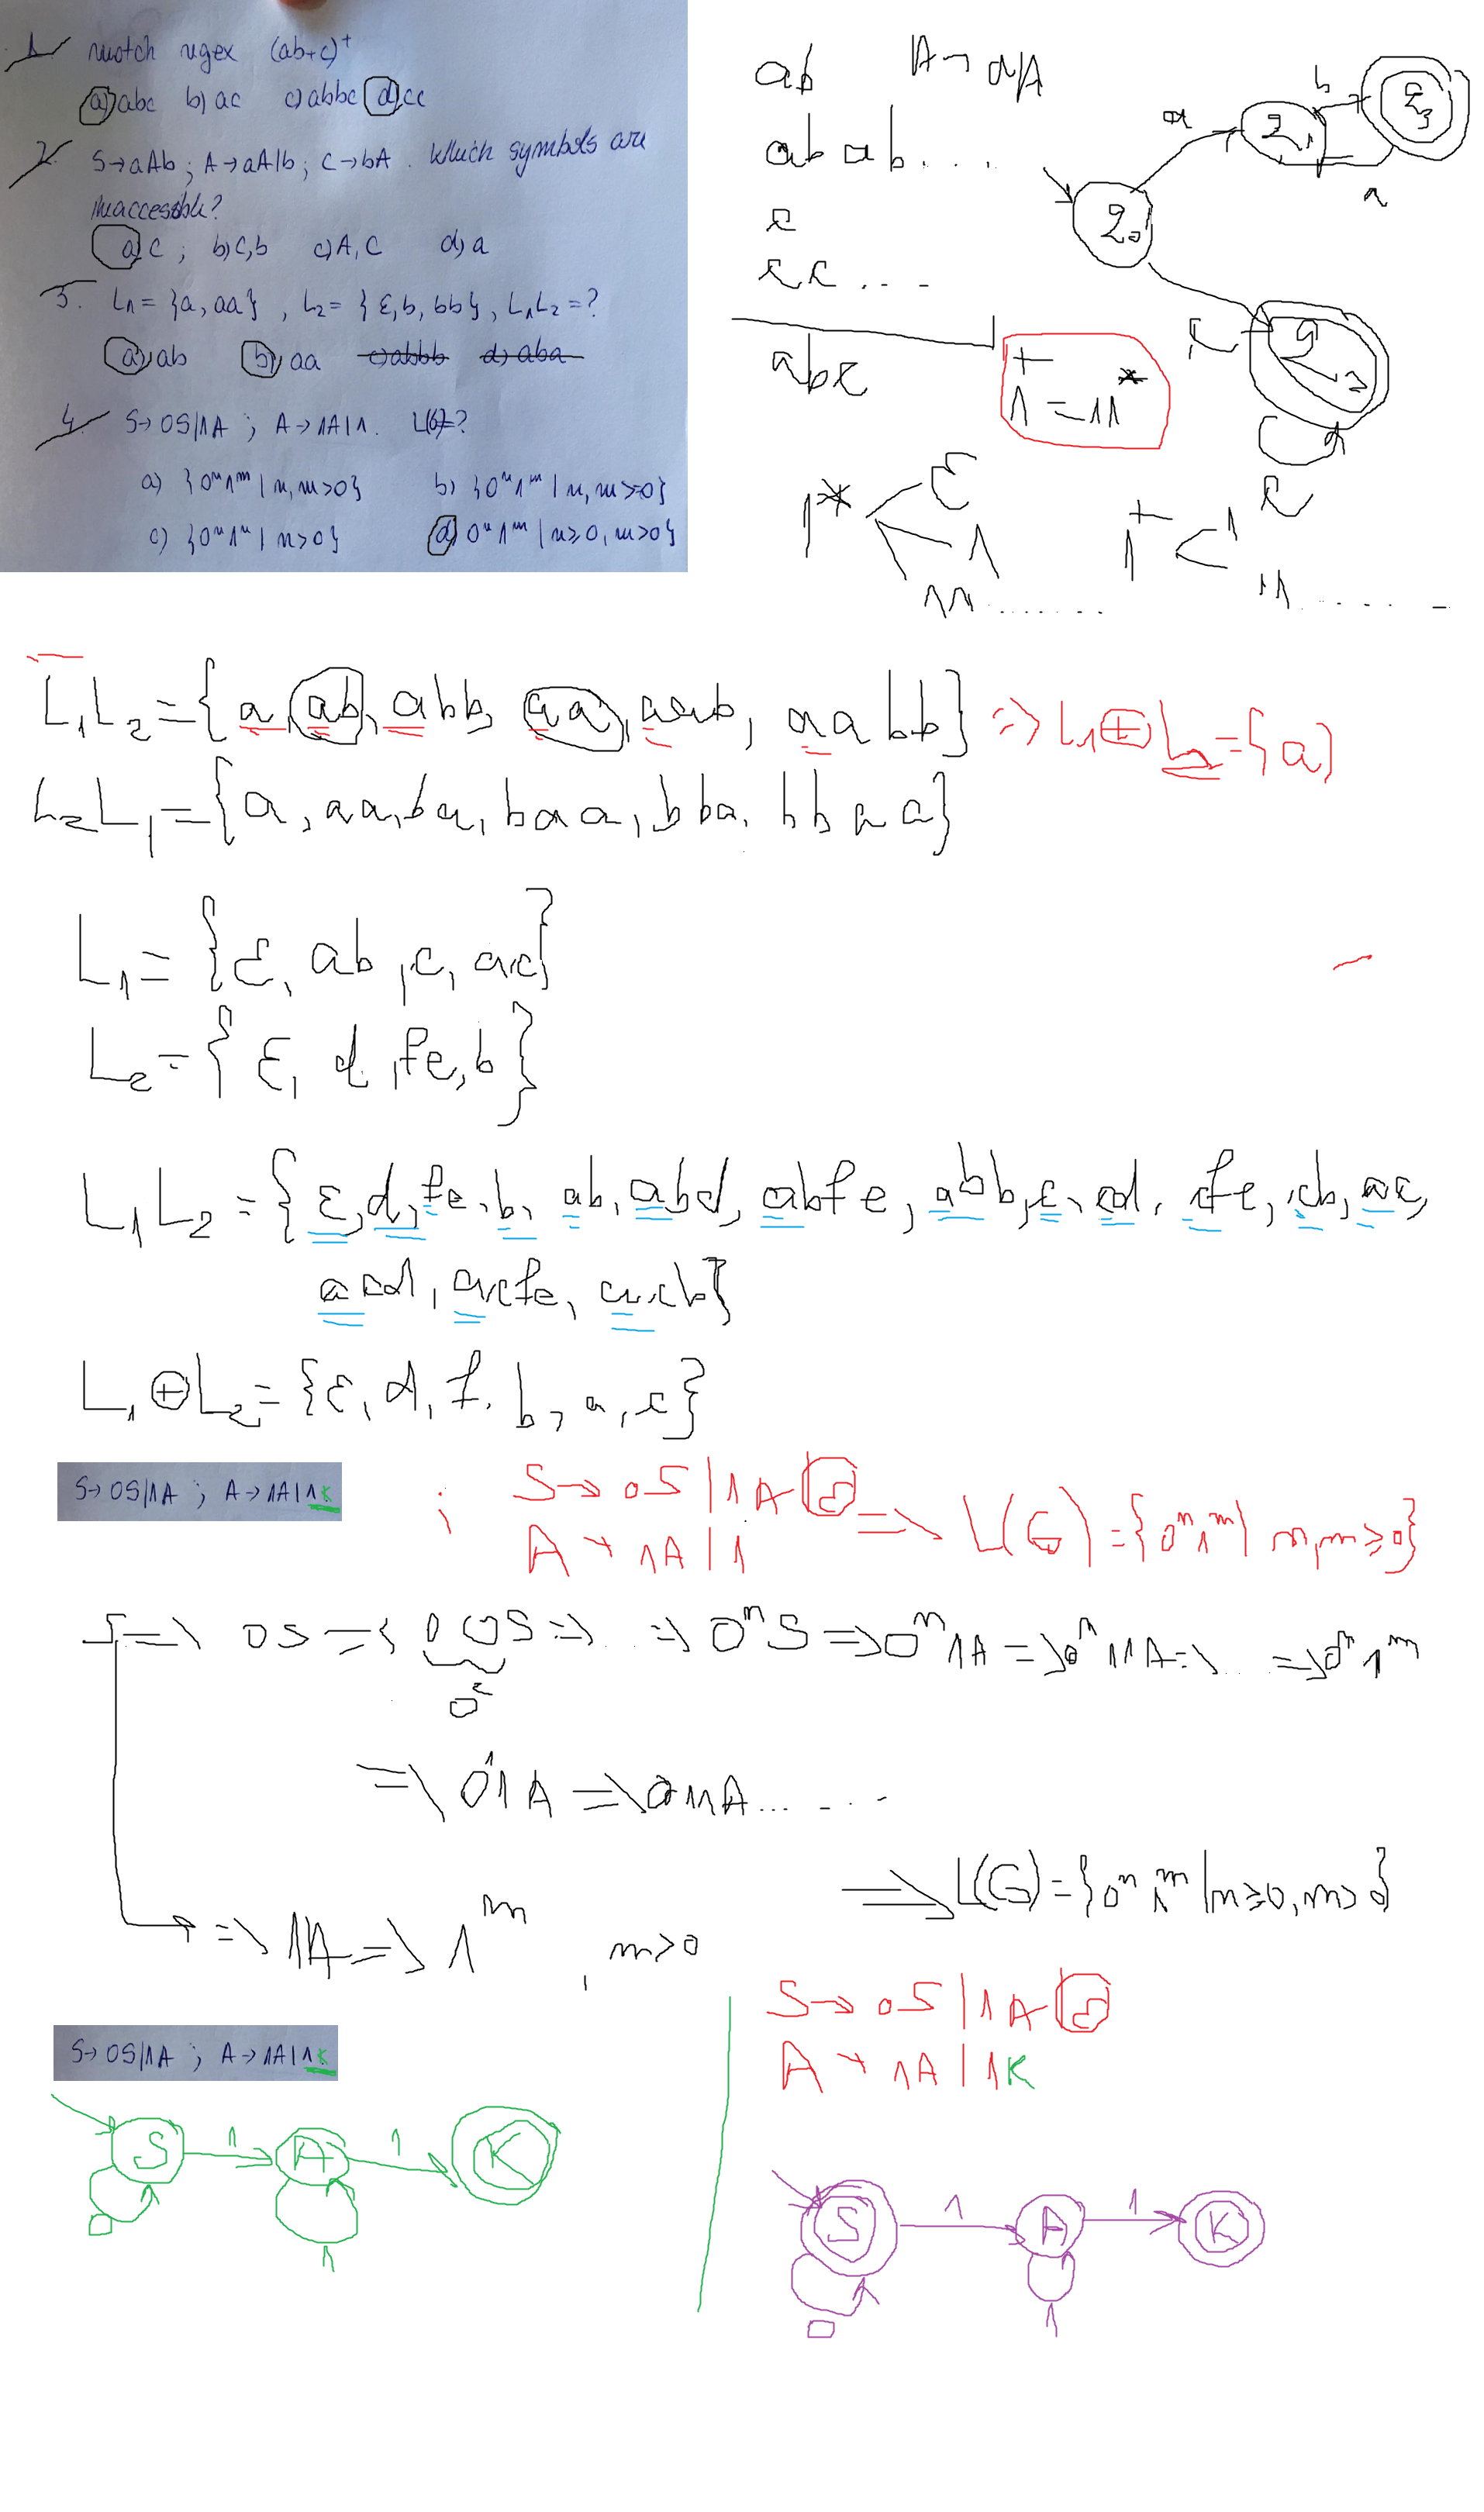 1. match regex (ab+c)⁺
a) abc b) ac c) abbc d) cc
2. S→aAb ; A→aA|b ; C→bA . Which symbols are
inaccessible?
a) C ; b) C,b c) A, C d) a
3. L₁= {a, aa} , L₂= {ε, b, bb} , L₁L₂=?
a) ab b) aa c) abbb d) aba
4. S→0S|1A ; A→1A|1. L(G)=?
a) {0ⁿ1ᵐ | n,m>0} b) {0ⁿ1ᵐ | n,m≥0}
c) {0ⁿ1ⁿ | n>0} d) 0ⁿ1ᵐ | n≥0, m>0}
ab A→a|A
abab....
c
cc...
abc
1⁺=11*
q₀ a q₁ b q₃ a
c q₂ c
1* ε 1 11.......
1⁺ 1 11.......
L₁L₂={a, ab, abb, aa, aab, aabb} => L₁⊕L₂={a}
L₂L₁={a, aa, ba, baa, bba, bbaa}
L₁={ε, ab, c, ac}
L₂={ε, d, fe, b}
L₁L₂={ε, d, fe, b, ab, abd, abfe, abb, c, cd, cfe, cb, ac,
acd, acfe, acb}
L₁⊕L₂={ε, d, f, b, a, c}
S→0S|1A ; A→1A|1K
; S→0S|1A|ε => L(G)={0ⁿ1ᵐ| n,m≥0}
A→1A|1
S=>0S=>00S=>..=>0ⁿS=>0ⁿ1A=>0ⁿ11A=>..=>0ⁿ1ᵐ
0²
=>0¹1A=>011A.......
=>L(G)={0ⁿ1ᵐ|n≥0, m>0}
=>1A=>1ᵐ, m>0
S→0S|1A|ε
S→0S|1A ; A→1A|1K
A→1A|1K
S 1 A 1 K
0 1
S 1 A 1 K
0 1